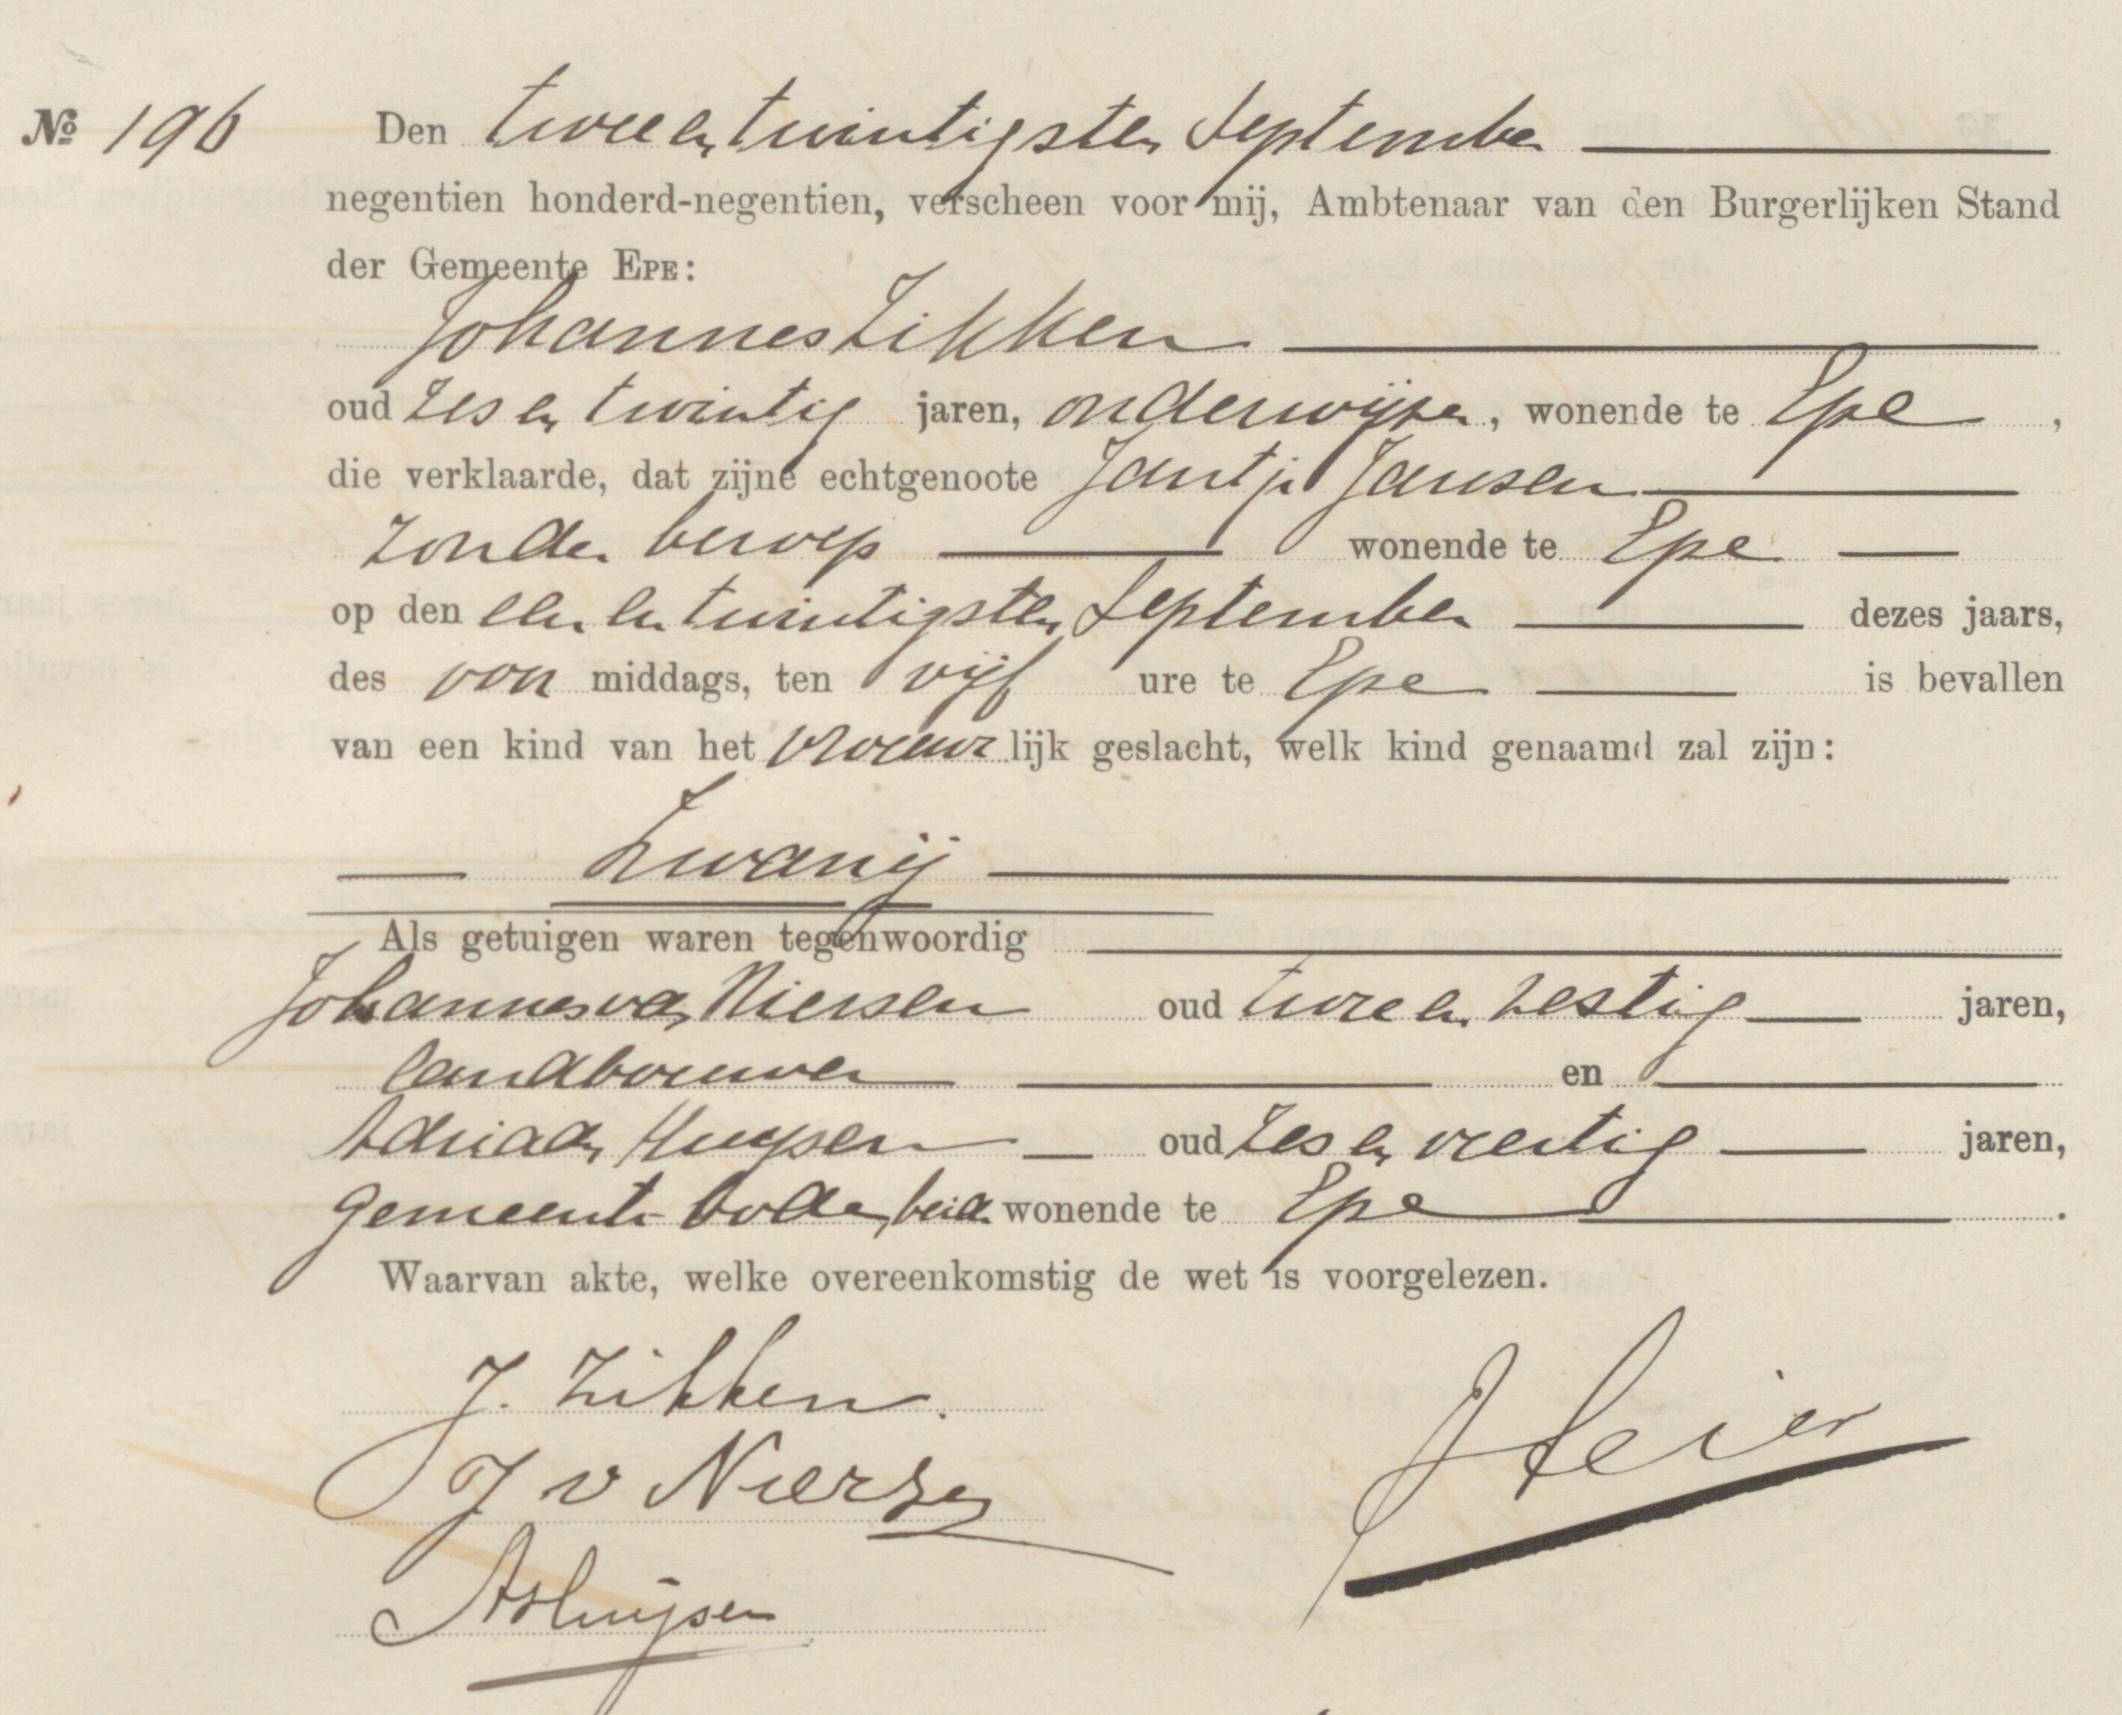 No 196 Den twee en twintigsten September
negentien honderd-negentien, verscheen voor mij, Ambtenaar van den Burgerlijken Stand
der Gemeente EPE:
Johannes Zikken
oud zes en twintig jaren, onderwijzer, wonende te Epe,
die verklaarde, dat zijne echtgenoote Jantje Jansen
zonder beroep wonende te Epe
op den een en twintigsten September dezes jaars,
des voor middags, ten vijf ure te Epe is bevallen
van een kind van het vrouwlijk geslacht, welk kind genaamd zal zijn:
Zwanij
Als getuigen waren tegenwoordig
Johannes van Niersen oud twee en zestig jaren,
landbouwer en
Adriaan Huysen oud zes en veertig jaren,
gemeente bode, beide wonende te Epe.
Waarvan akte, welke overeenkomstig de wet is voorgelezen.
J. Zikken.
J v Nierse
AHuijsen